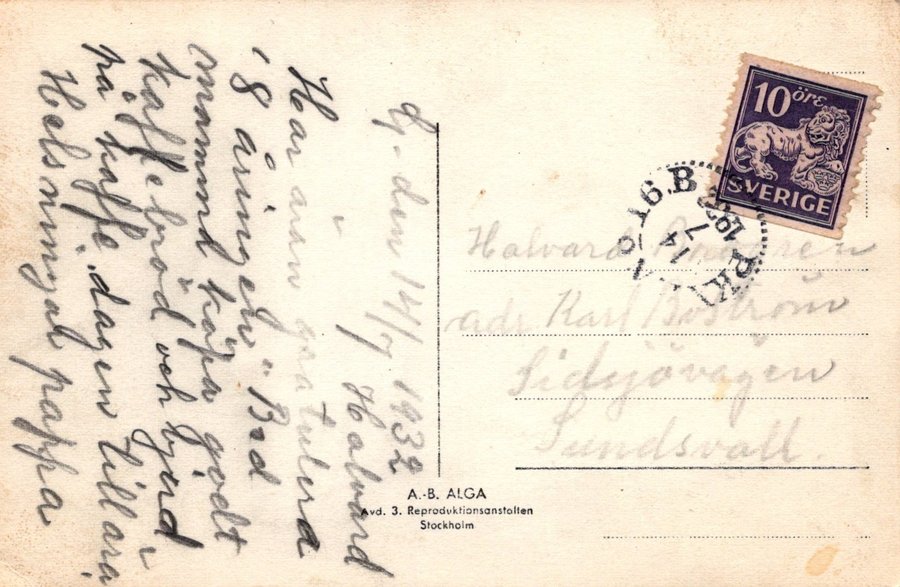 G. den 14/7 1932
Halvard
Har äran gratulera
18 åringen. Bed
mamma köpa godt
kaffebröd och bjud
på kaffe dagen till ära,
Hels mycal pappa
10 öre
SVERIGE
16.B
1932
7
14
PKXP
Halvard
adr Karl Boström
Sidsjövägen
Sundsvall.
A.-B. ALGA
Avd. 3. Reproduktionsanstalten
Stockholm